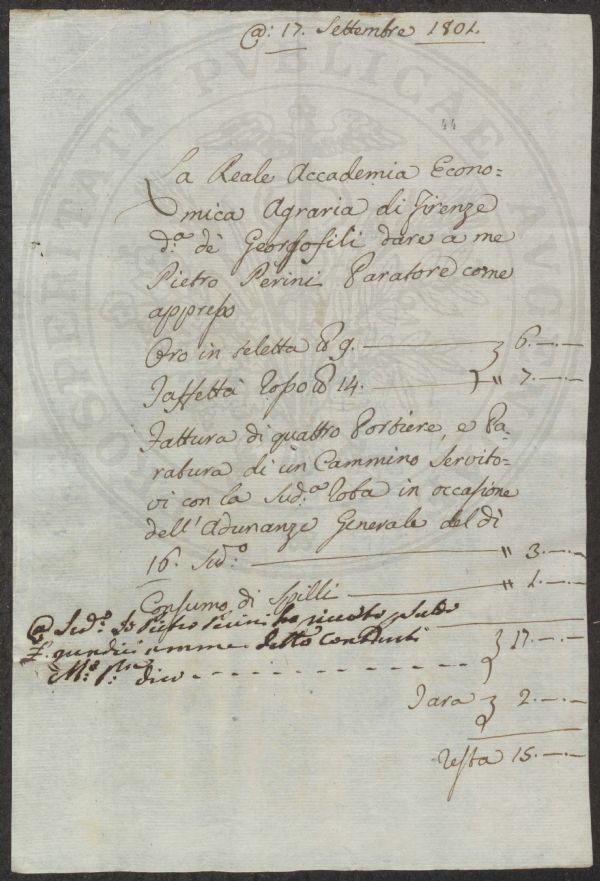 @: 17. Settembre 1801.
44
La Reale Accademia Econo=
mica Agraria di Firenze
d.ª de Georgofili dare a me
Pietro Perini Paratore come
appresso
Oro in teletta 9. 6.—.—
Taffettà rosso 14. " 7.—.—
Fattura di quattro Portiere, e Pa=
ratura di un Cammino servito=
vi con la sud.ª roba in occasione
dell'Adunanze Generale del dì
16. Sud.º " 3.—.—
Consumo di Spilli " 1.—.—
@ Sud.º Io Pietro Perini ho riceuto saldo
quindici contanti 17.—.—
M.º p.ª dico
Tara 2.—.—
Resta 15.—.—
PROSPERITATI PVBLICAE AVCTAE